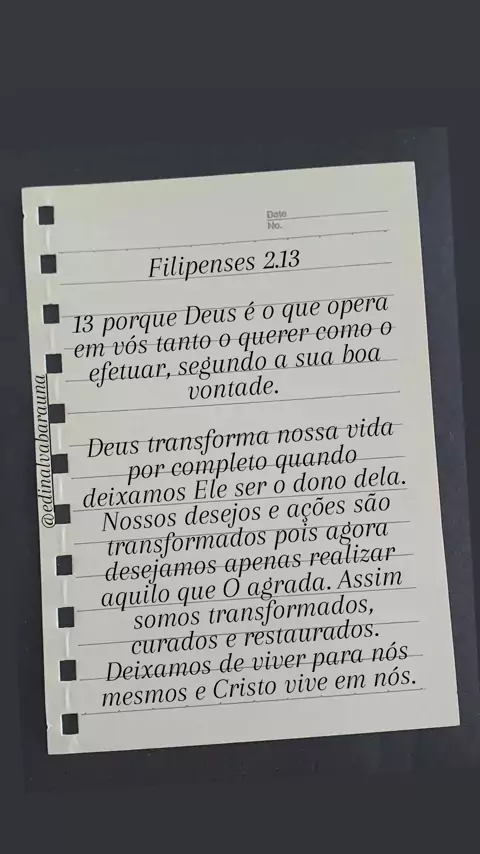 Date
No.
Filipenses 2.13
13 porque Deus é o que opera
em vós tanto o querer como o
efetuar, segundo a sua boa
vontade.
Deus transforma nossa vida
por completo quando
deixamos Ele ser o dono dela.
Nossos desejos e ações são
transformados pois agora
desejamos apenas realizar
aquilo que O agrada. Assim
somos transformados,
curados e restaurados.
Deixamos de viver para nós
mesmos e Cristo vive em nós.
@edinalvabarauna